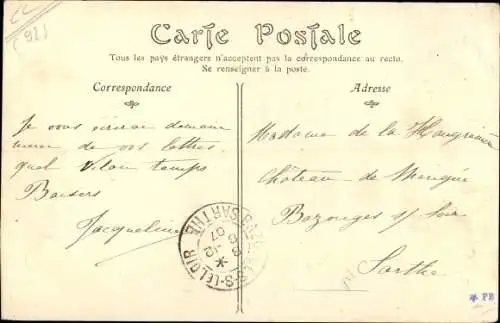 (92)
Carte Postale
Tous les pays étrangers n'acceptent pas la correspondance au recto.
Se renseigner à la poste.
Correspondance
Adresse
Je vous écrirai demain
merci de vos lettres
quel vilain temps
Baisers
Jacqueline
Madame de la
Château de
Bazouges s/ Loir
Sarthe
SARTHE
07
* PB